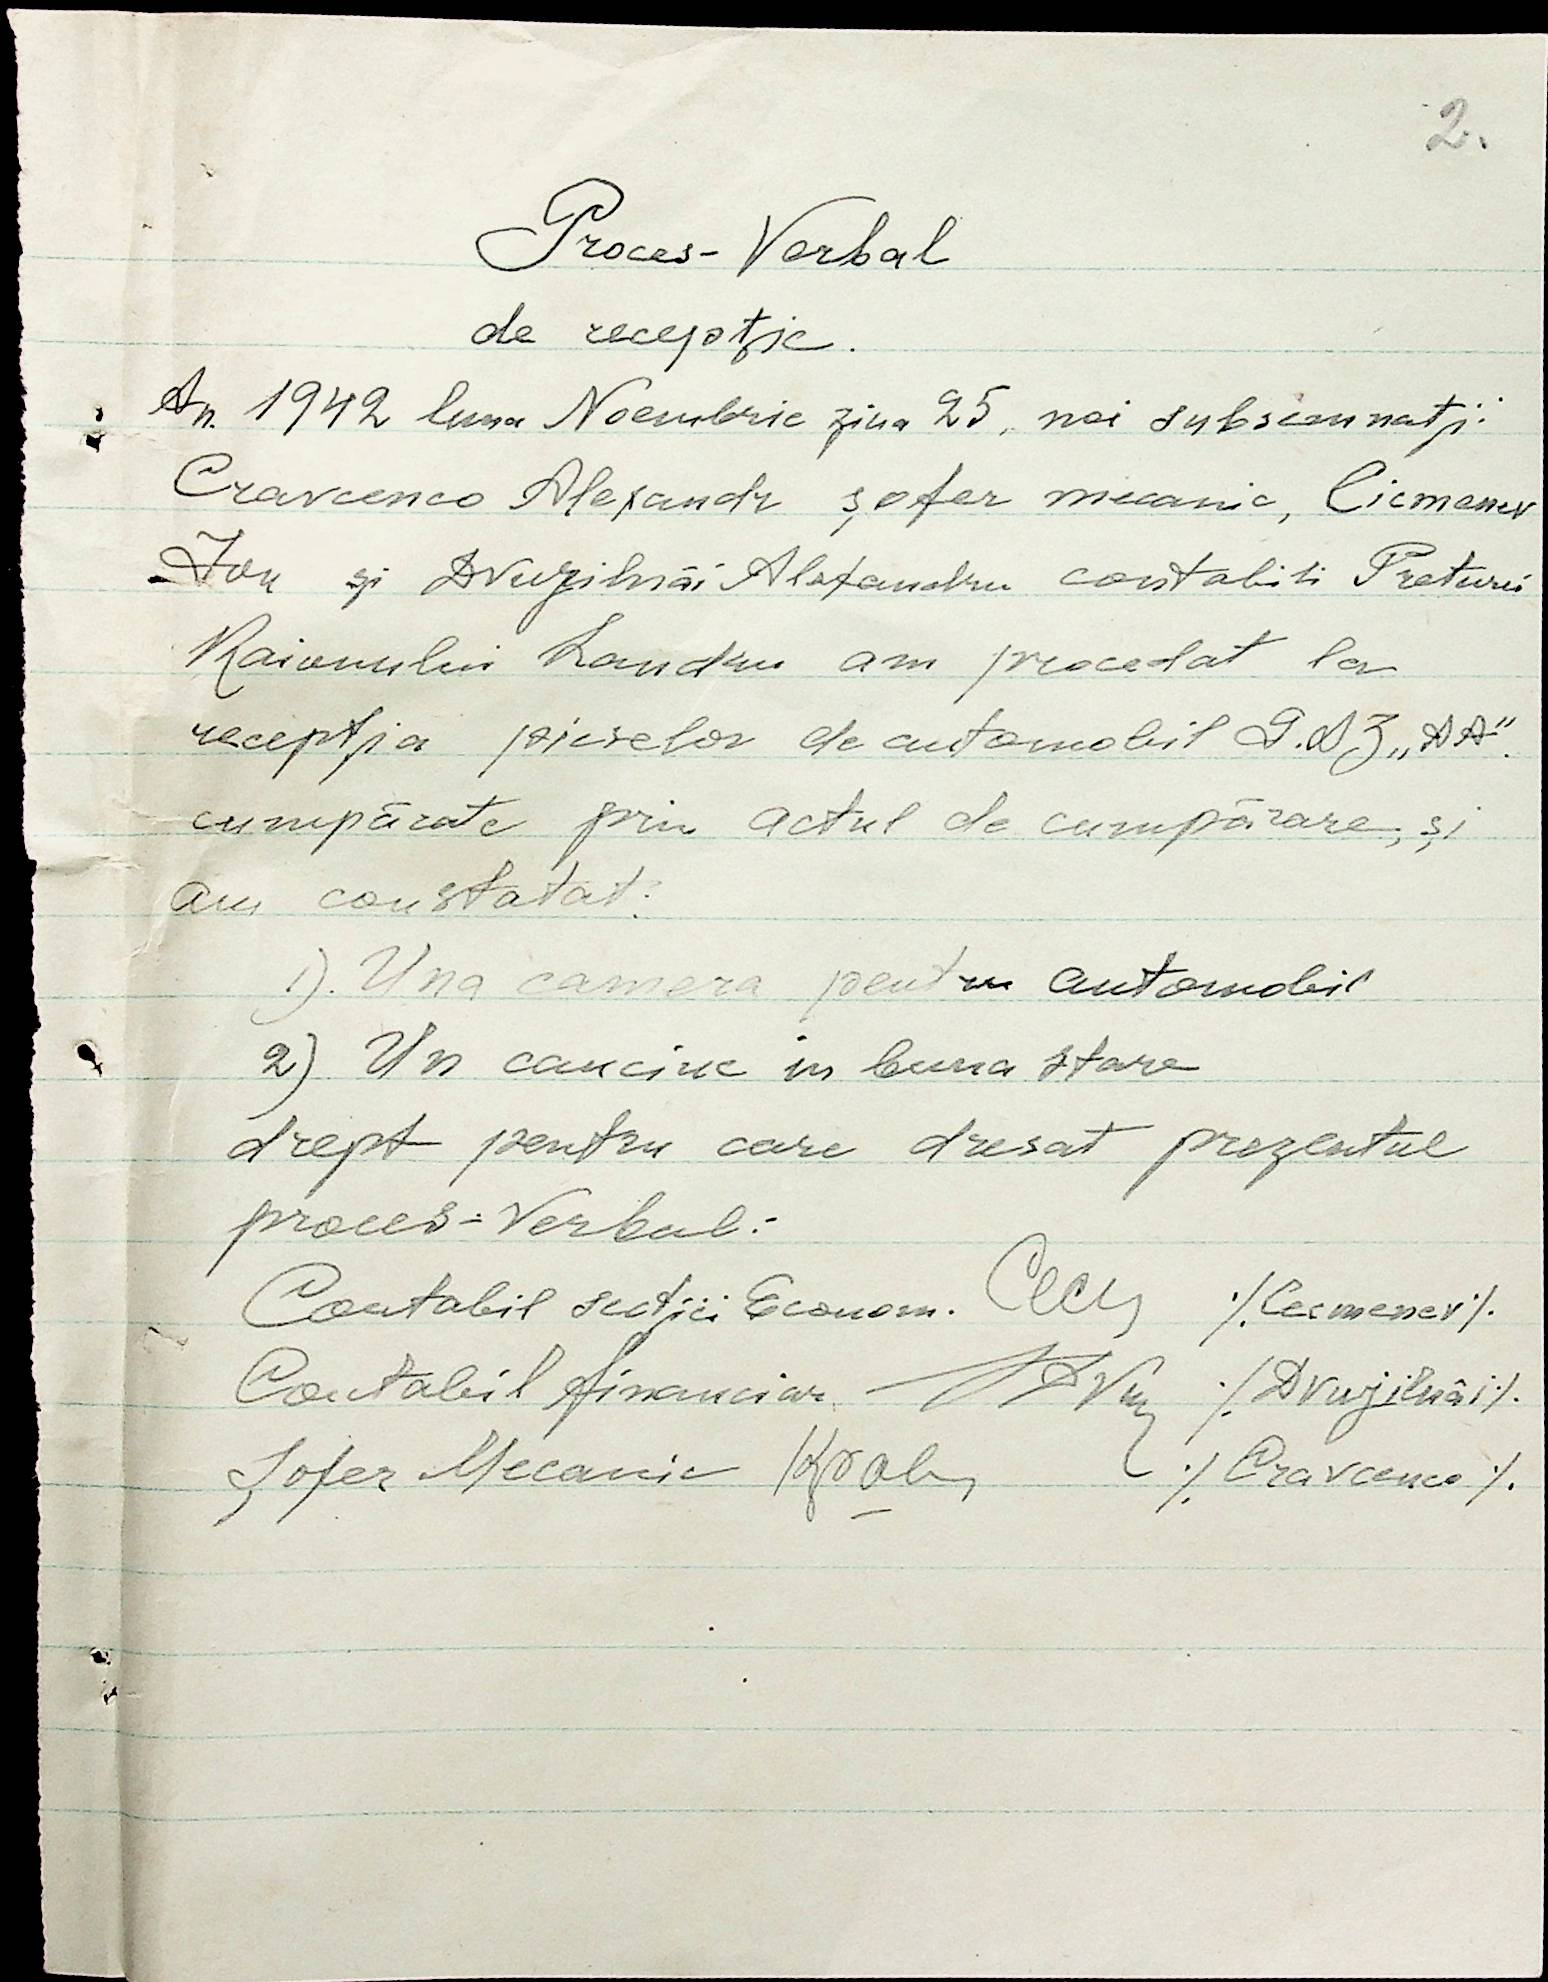 2.
Proces-Verbal
de recepţie.
An. 1942 luna Noembrie ziua 25, noi subsemnaţii
Cravcenco Alexandr şofer mecanic, Cicmenev
Ion şi Dvujilnâi Alexandru contabili Preturii
Raionului Landau am procedat la
recepţia pieselor de automobil G.AZ „AA".
cumpărate prin actul de cumpărare, şi
am constatat:
1). Una camera pentru automobil
2) Un cauciuc in buna stare
drept pentru care dresat prezentul
proces-verbal:-
Contabil secţiei Econom. ·/.Cecmenev·/.
Contabil financiar ·/.Dvujilnâi·/.
Şofer Mecanic ·/.Cravcenco·/.